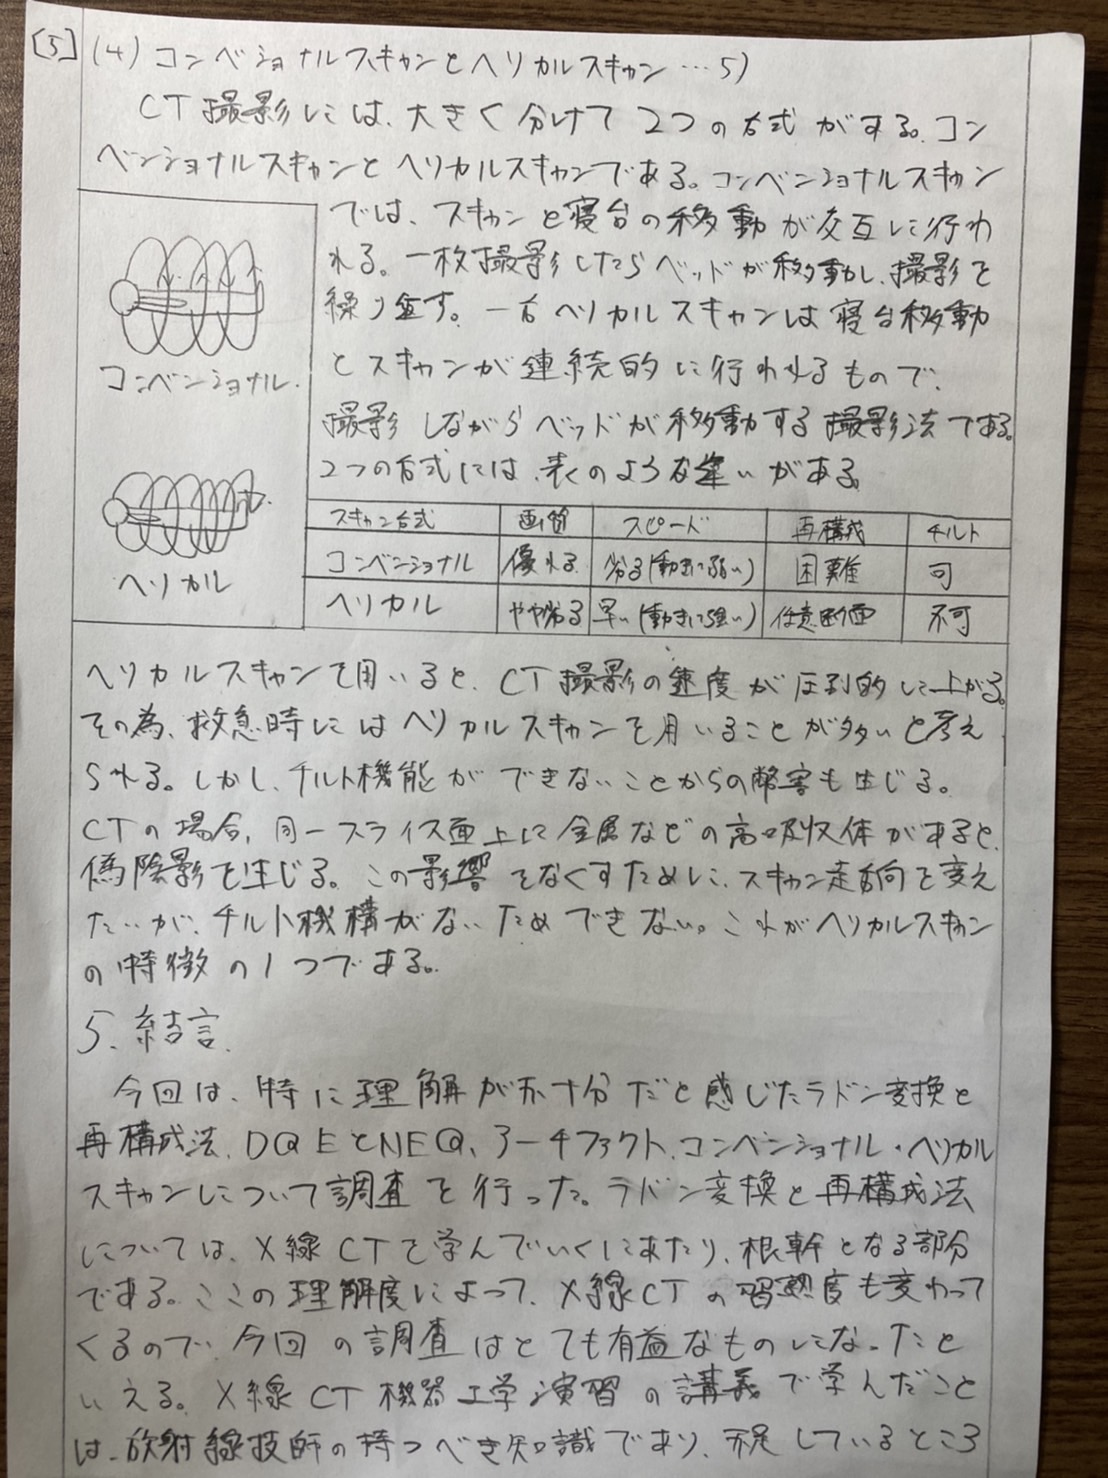 [5] (4) コンベショナルスキャンとヘリカルスキャン…5)
CT撮影には、大きく分けて2つの方式がする。コン
ベンショナルスキャンとヘリカルスキャンである。コンベンショナルスキャン
では、スキャンと寝台の移動が交互に行わ
れる。一枚撮影したらベッドが移動し、撮影を
繰り直す。一方ヘリカルスキャンは寝台移動
とスキャンが連続的に行われるもので、
撮影しながらベッドが移動する撮影法である。
2つの方式には、表のような違いがある。
コンベンショナル.
ヘリカル
スキャン方式 画質 スピード 再構成 チルト
コンベンショナル 優れる 劣る(動きに弱い) 困難 可
ヘリカル やや劣る 早い(動きに強い) 任意断面 不可
ヘリカルスキャンを用いると、CT撮影の速度が圧倒的に上がる。
その為、救急時にはヘリカルスキャンを用いることが多いと考え
られる。しかし、チルト機能ができないことからの弊害も生じる。
CTの場合、同一スライス面上に金属などの高吸収体があると、
偽陰影を生じる。この影響をなくすために、スキャン走方向を変え
たいが、チルト機構がないためできない。これがヘリカルスキャン
の特徴の1つである。
5. 結言.
今回は、特に理解が不十分だと感じたラドン変換と
再構成法、DQEとNEQ、アーチファクト、コンベンショナル・ヘリカル
スキャンについて調査を行った。ラドン変換と再構成法
については、X線CTを学んでいくにあたり、根幹となる部分
である。ここの理解度によって、X線CTの習熟度も変わって
くるので、今回の調査はとても有益なものになったと
いえる。X線CT機器工学演習の講義で学んだこと
は、放射線技師の持つべき知識であり、不足しているところ